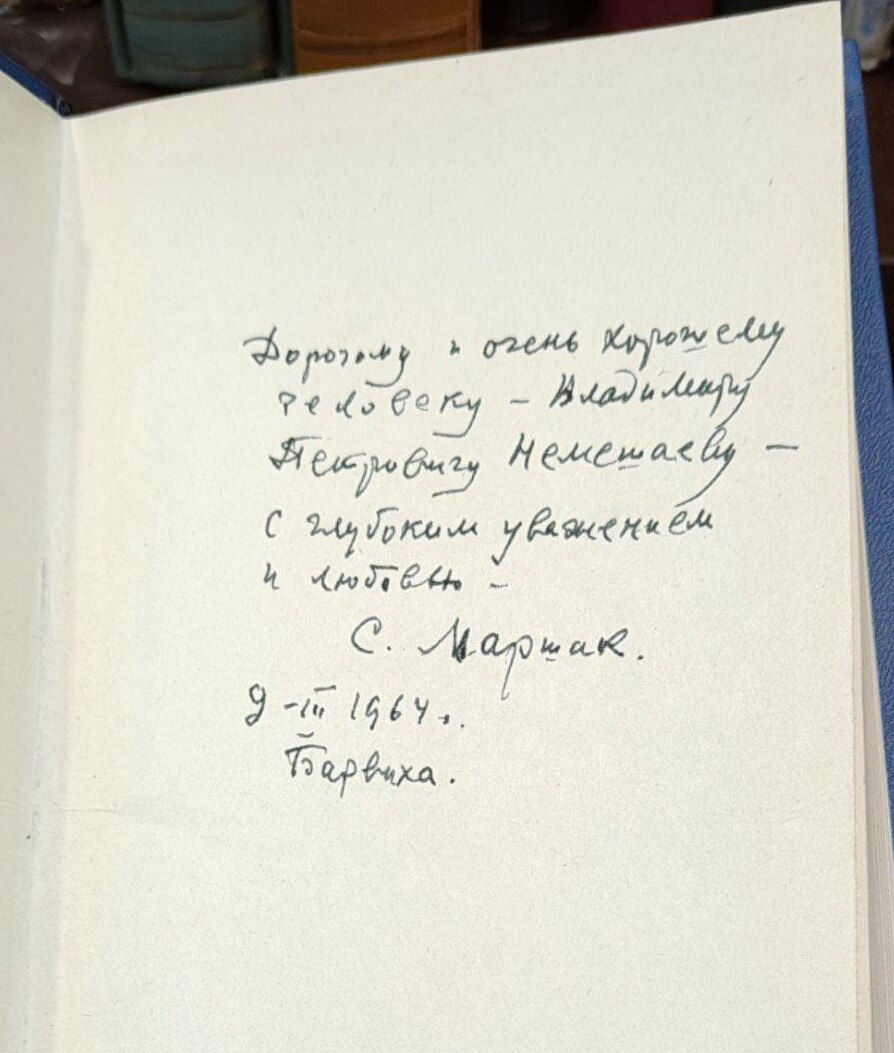 Дорогому и очень хорошему
человеку – Владимиру
Петровичу Немешаеву –
с глубоким уважением
и любовью –
С. Маршак.
9 – III 1964 г.
Барвиха.